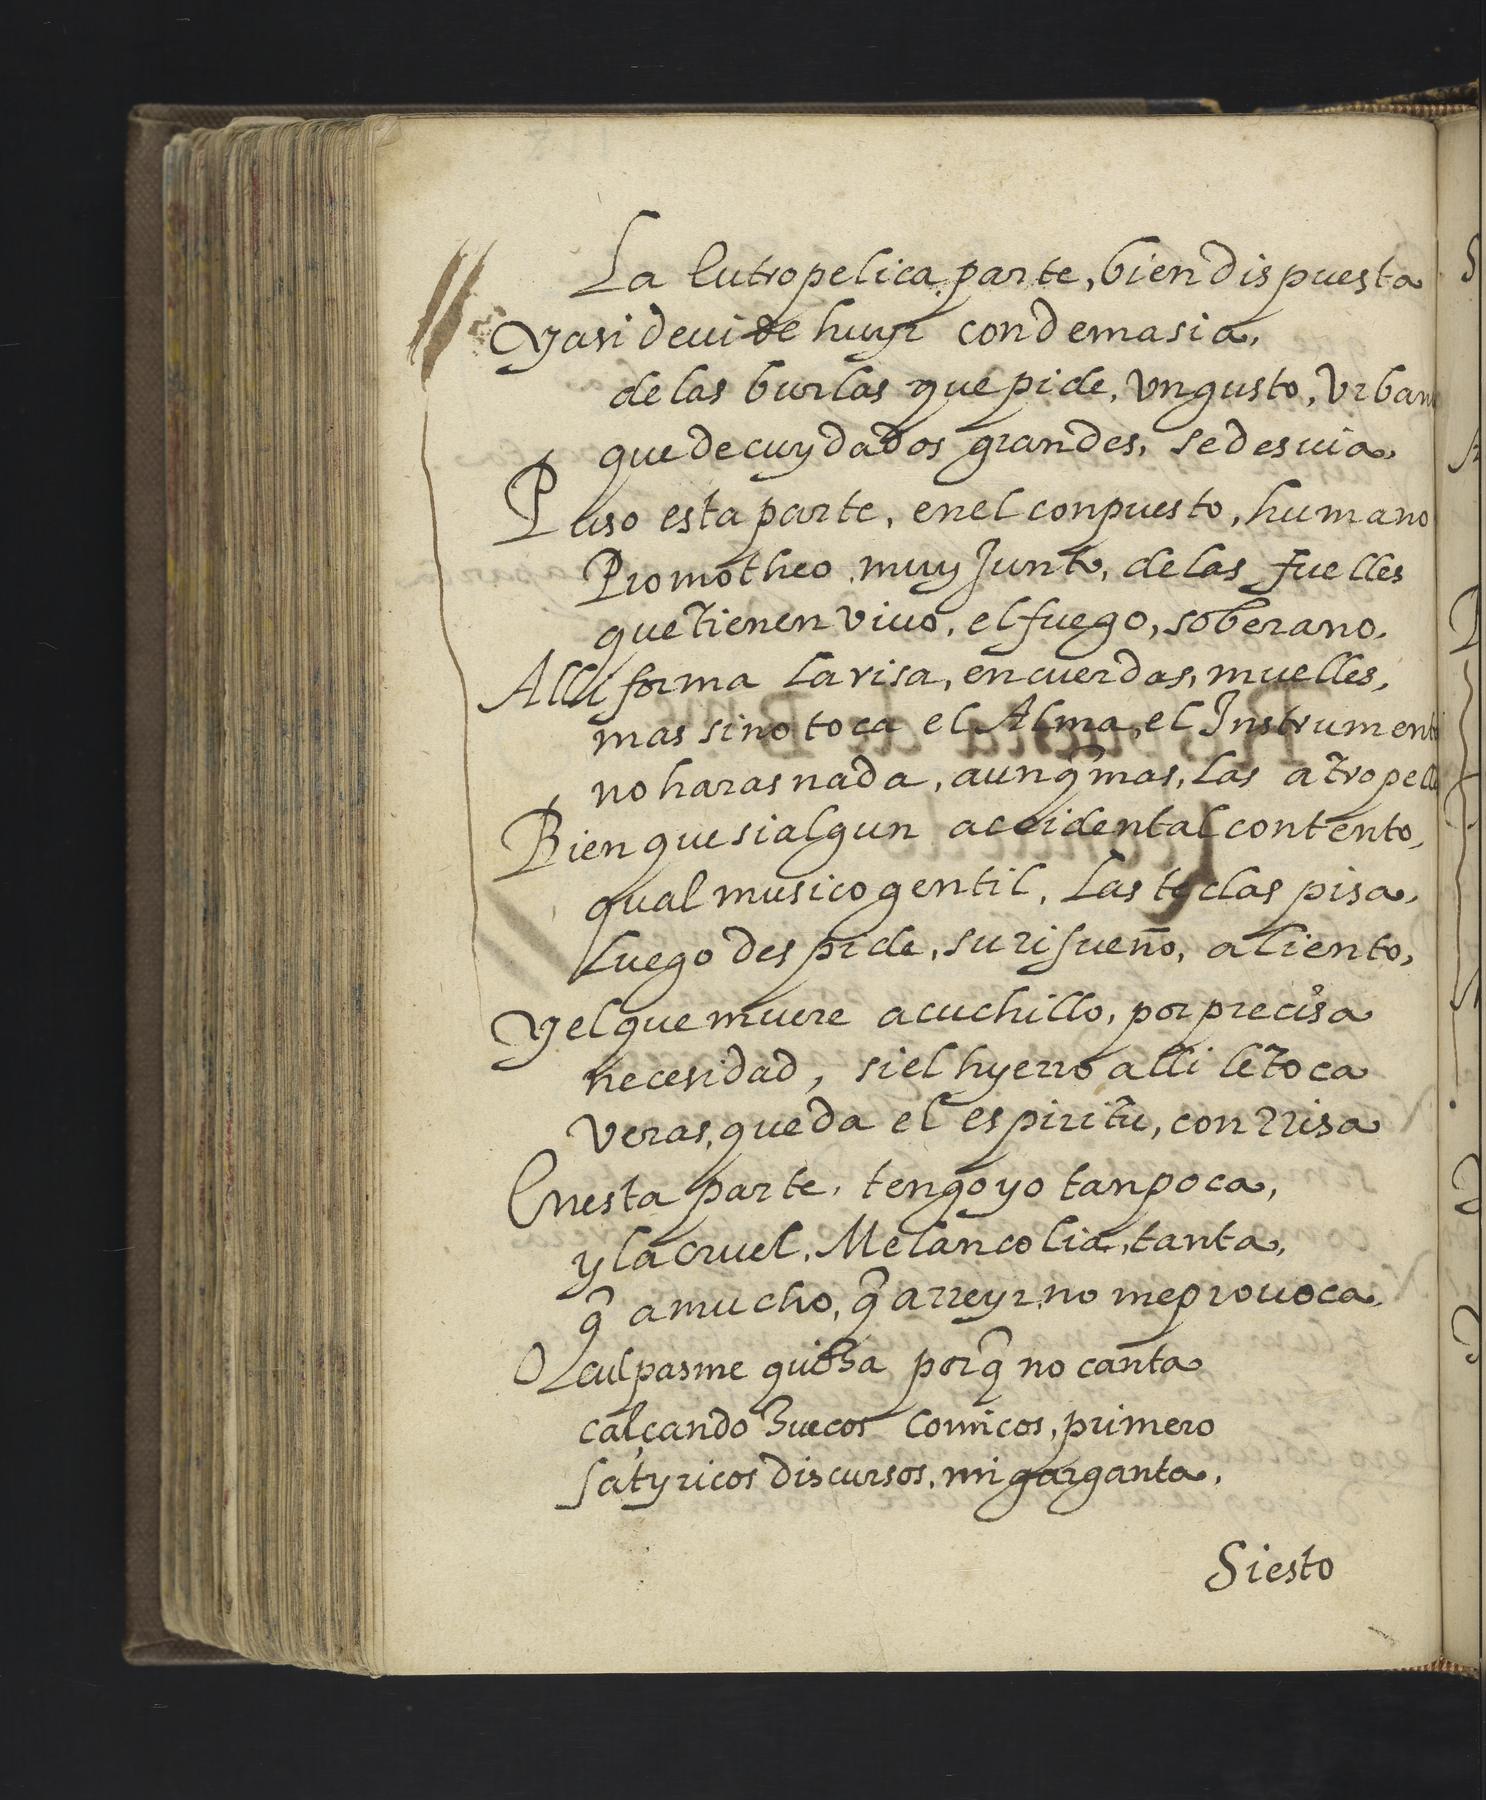 La Eutropelica parte, bien dispuesta
Yasi deui de huyr con demasia,
de las burlas que pide, vn gusto, Vrban
que de cuydados grandes, se desuia.
Puso esta parte, en el conpuesto, humano
Promotheo muy Junto, de las fuelles
que tienen viuo, el fuego, soberano.
Alli forma la risa, en cuerdas, muelles,
mas si no toca el Alma, el Instrument
no haras nada, aunq̃ mas, las atropell
Bien que si algun accidental contento,
qual musico gentil, las teclas pisa,
luego despide, su risueño, aliento,
Y el que muere a cuchillo, por precisa
necesidad, si el hyerro alli le toca
Veras, queda el espiritu, con rrisa
Enesta parte, tengo yo tan poca,
y la cruel, Melancolia, tanta,
q̃ a mucho, q̃ a rreyr, no me prouoca.
culpasme quiza porq̃ no canta
calçando zuecos Comicos, primero
satyricos discursos, mi garganta.
Siesto